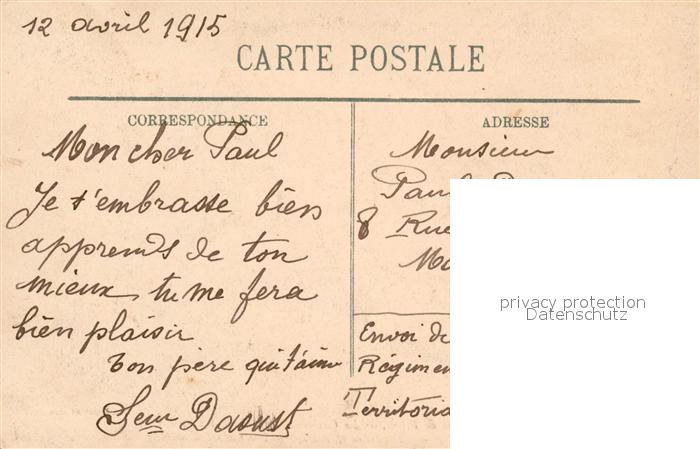 12 avril 1915
CARTE POSTALE
CORRESPONDANCE
Mon cher Paul
Je t'embrasse bien
apprends de ton
mieux, tu me fera
bien plaisir
ton père qui t'aime
Daoust
ADRESSE
Monsieur
Paul
8 Rue
Envoi de
Régimen
Territoria
privacy protection
Datenschutz